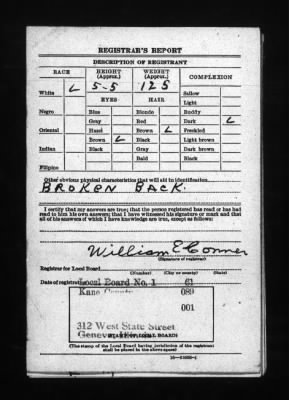 REGISTRAR'S REPORT
DESCRIPTION OF REGISTRANT
RACE HEIGHT (Approx.) WEIGHT (Approx.) COMPLEXION
White ✓ 5-5 125 Sallow
EYES HAIR Light
Negro Blue Blonde Ruddy
Gray Red Dark ✓
Oriental Hazel Brown ✓ Freckled
Brown ✓ Black Light brown
Indian Black Gray Dark brown
Bald Black
Filipino
Other obvious physical characteristics that will aid in identification
BROKEN BACK.
I certify that my answers are true; that the person registered has read or has had
read to him his own answers; that I have witnessed his signature or mark and that
all of his answers of which I have knowledge are true, except as follows:
William E Conner
(Signature of registrar)
Registrar for Local Board
(Number) (City or county) (State)
Date of registration
Local Board No. 1 61
Kane County 089
001
312 West State Street
Geneva,
(STAMP OF LOCAL BOARD)
(The stamp of the Local Board having jurisdiction of the registrant
shall be placed in the above space)